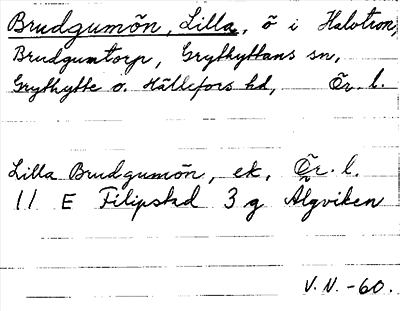 Brudgumön, Lilla, ö i Halvtron,
Brudgumtorp, Grythyttans sn,
Grythytte o. Hällefors hd, Ör. l.
Lilla Brudgumön, ek, Ör. l.
11 E Filipstad 3 g Älgviken
V.N. -60.